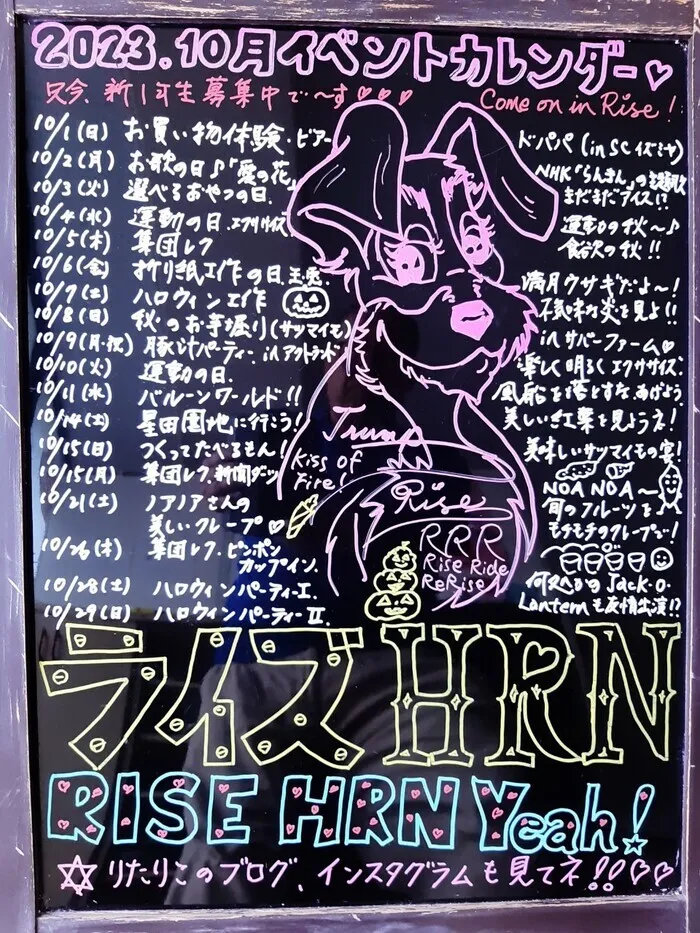 2023.10月イベントカレンダー♡
只今、新1年生募集中で〜す♡♡♡ Come on in Rise!
10/1(日) お買い物体験・ビアードパパ(in SCイズミヤ)
10/2(月) お歌の日♪「愛の花」 NHK「らんまん」の主題歌
10/3(火) 選べるおやつの日。 まだまだアイス!?
10/4(水) 運動の日 エクササイズ 運動の秋〜♪
10/5(木) 集団レク 食欲の秋!!
10/6(金) 折り紙工作の日 玉兎。 満月ウサギだよ〜!
10/7(土) ハロウィン工作
10/8(日) 秋のお芋堀り(サツマイモ) in サバーファーム♡
10/9(月・祝) 豚汁パーティー。inアクトランド
10/10(火) 運動の日 楽しく明るくエクササイズ。
10/11(水) バルーンワールド!! 風船を落とすな、あげよう。
10/14(土) 星田園地に行こう! 美しい紅葉を見ようネ!
10/15(日) つくってたべるもん! 美味しいサツマイモの宴!
10/15(月) 集団レク.新聞ダッシュ
10/21(土) ノアノアさんの NOA NOA〜
美しいクレープ♡ 旬のフルーツを
モチモチのクレープで!
10/26(木) 集団レク.ピンポン
カップイン.
10/28(土) ハロウィンパーティーI. Jack-O-
10/29(日) ハロウィンパーティーII. Lanternも友情出演!?
Tramp
Kiss of
Fire!
Rise
RRR
Rise Ride
ReRise
ライズHRN
RISE HRN Yeah!
✡りたりこのブログ、インスタグラムも見てネ!!♡♡